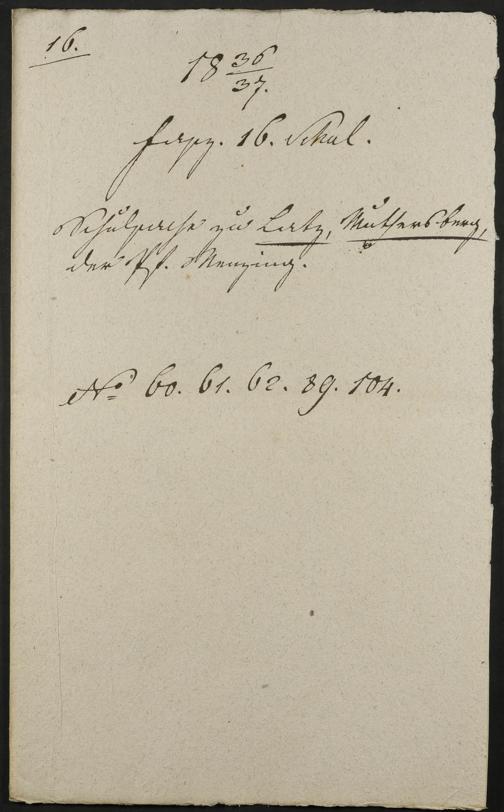 16.
18 36/37.
Fasz. 16. Schul.
Schulsache zu Latz, Muttersberg,
der Pf.
No 60. 61. 62. 89. 104.